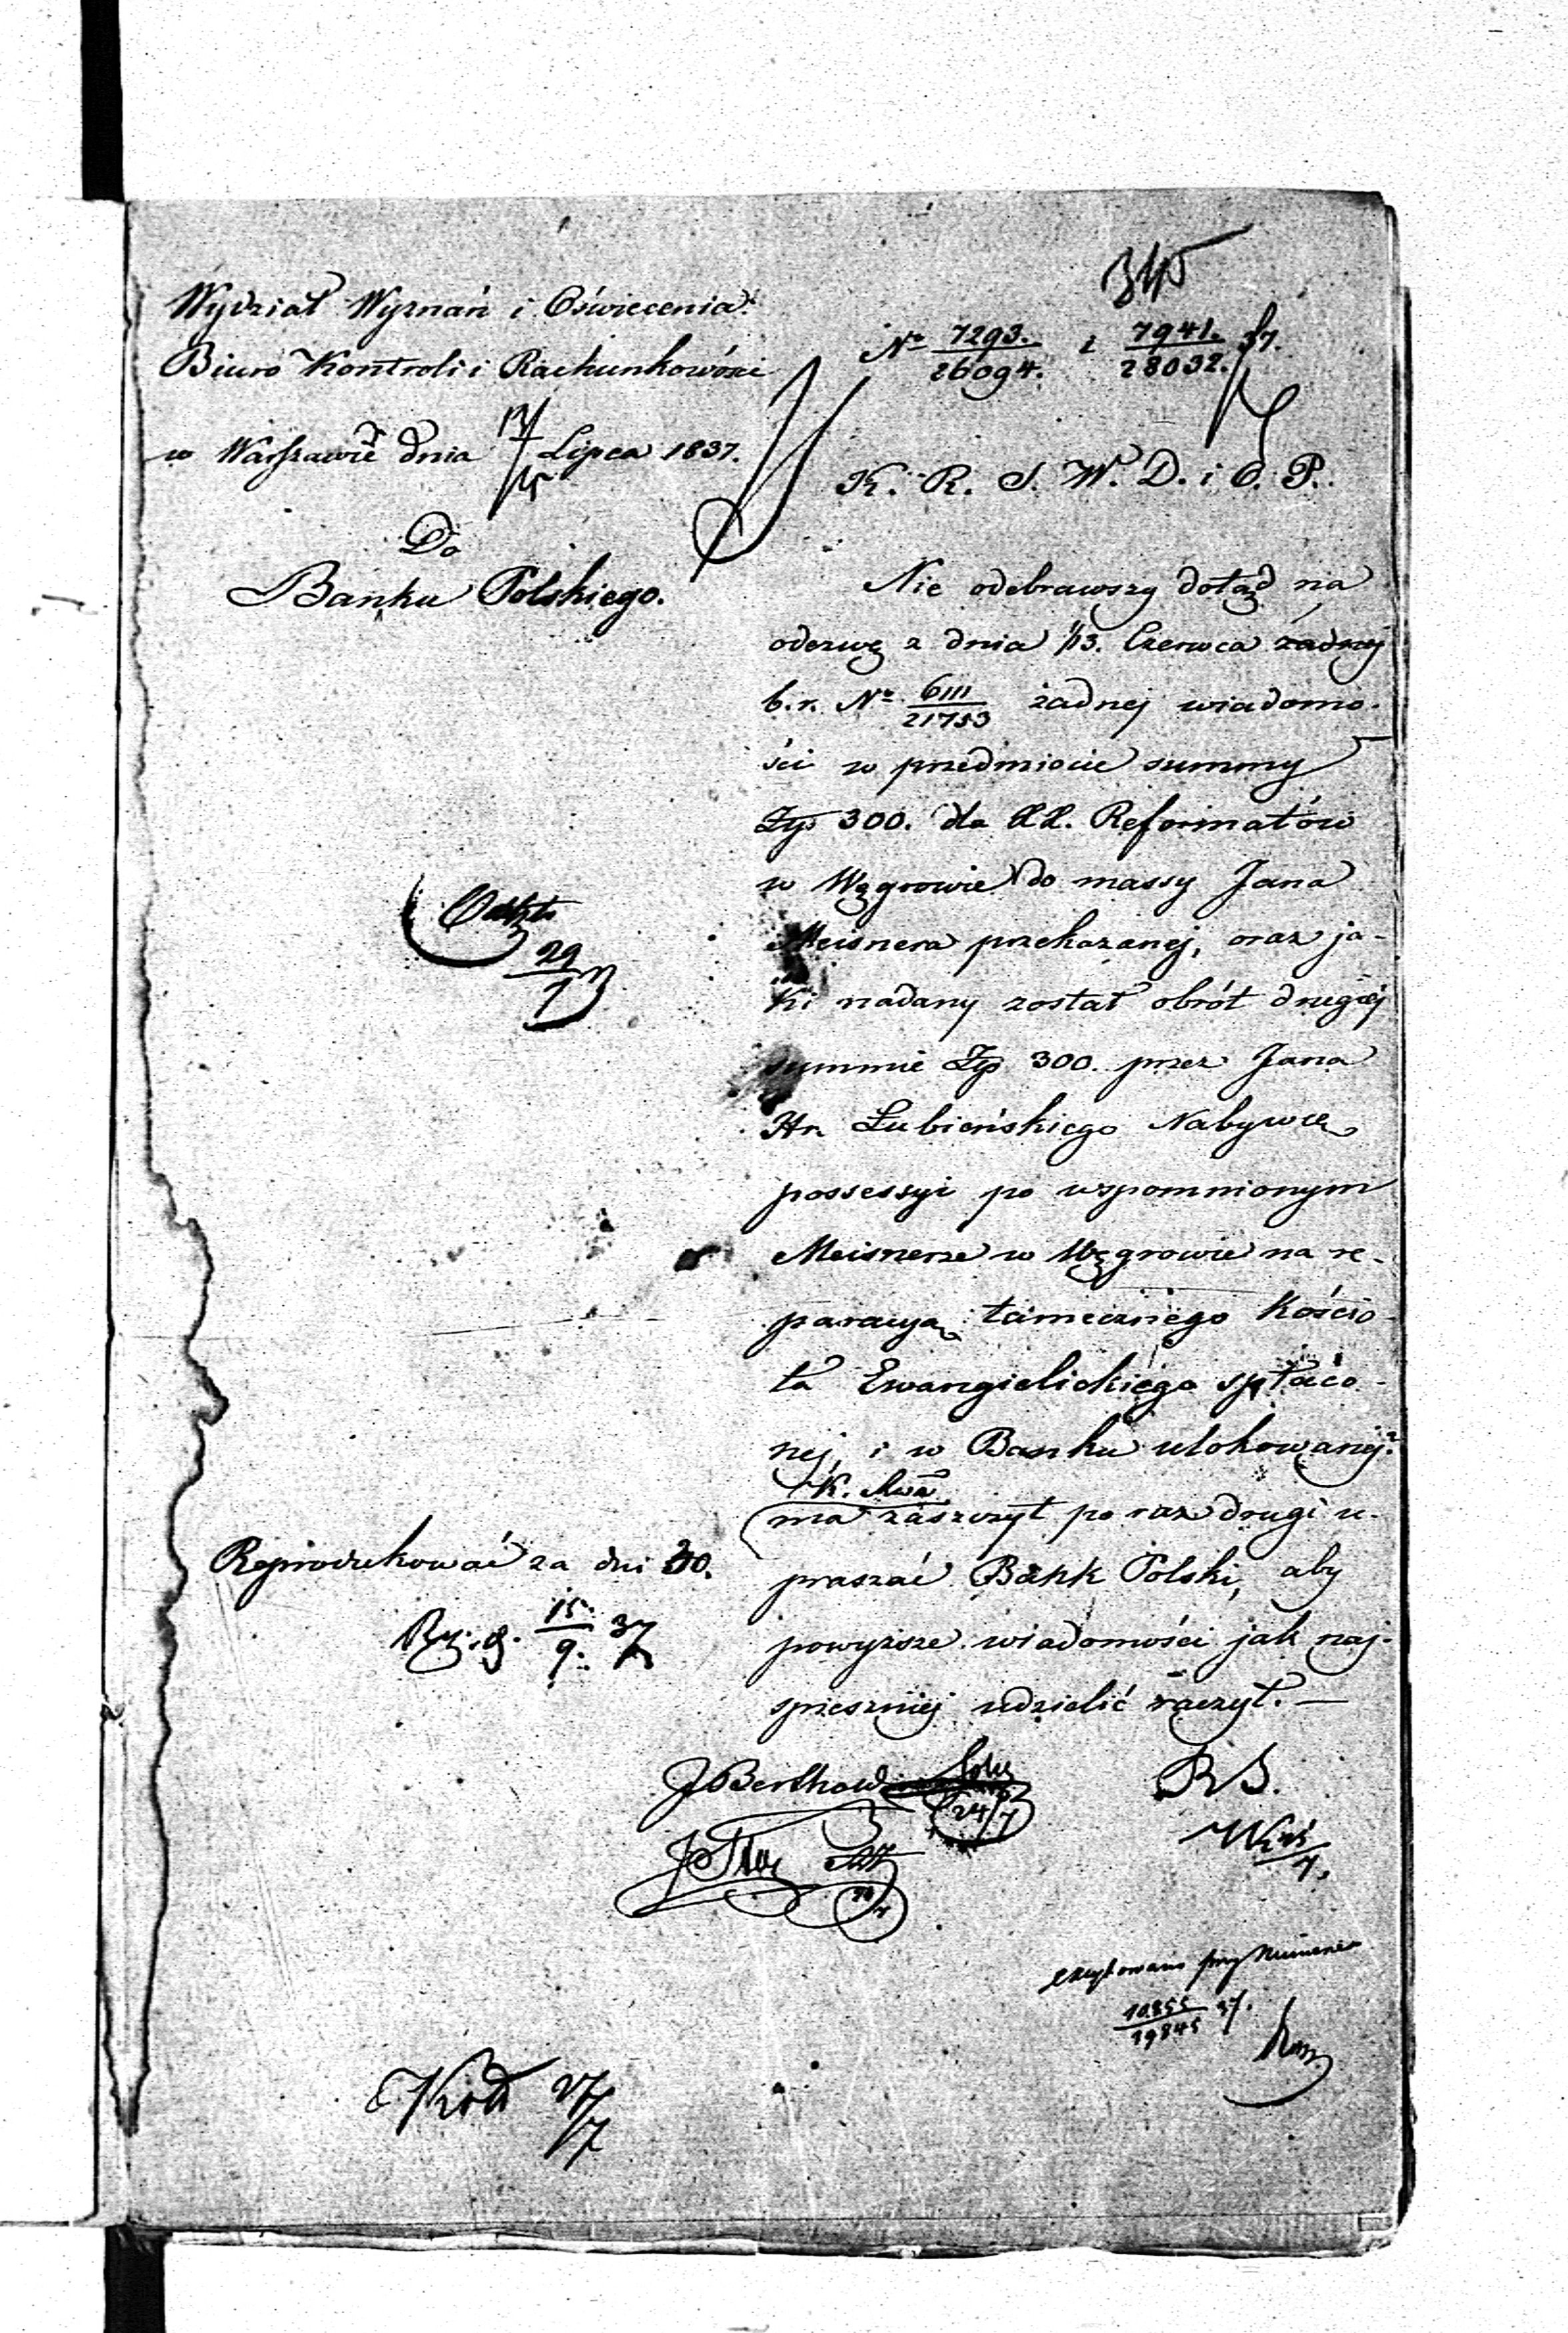 345
Wydział Wyznań i Oświecenia
Biuro Kontroli i Rachunkowości
w Warszawie dnia Lipca 1837.
Do
Banku Polskiego.
No 7293./26094. i 7941./28032. 37.
K. R. S. W. D. i O. P.
Nie odebrawszy dotąd na
odezwę z dnia 1/13. Czerwca żadnej
b. r. No 6111/21753 żadnej wiadomo-
ści w przedmiocie summy
Złp 300. dla XX. Reformatów
w Węgrowie do massy Jana
Meisnera przekazanej, oraz ja-
ki nadany został obrót drugiej
summie Złp 300. przez Jana
Hr. Łubieńskiego Nabywcę
possessyi po wspomnionym
Meisnerze w Węgrowie na re-
paracyą tamecznego Kościo-
ła Ewangielickiego spłaco-
nej, i w Banku ulokowanej?
K.
ma zaszczyt po raz drugi u-
praszać Bank Polski, aby
powyższe wiadomości jak naj-
spieszniej udzielić raczył. —
29/7
Reprodukować za dni 30.
15/9. 37
JBerthold
24/7
RS.
przy Numerze
10855/19845 37.
27/7